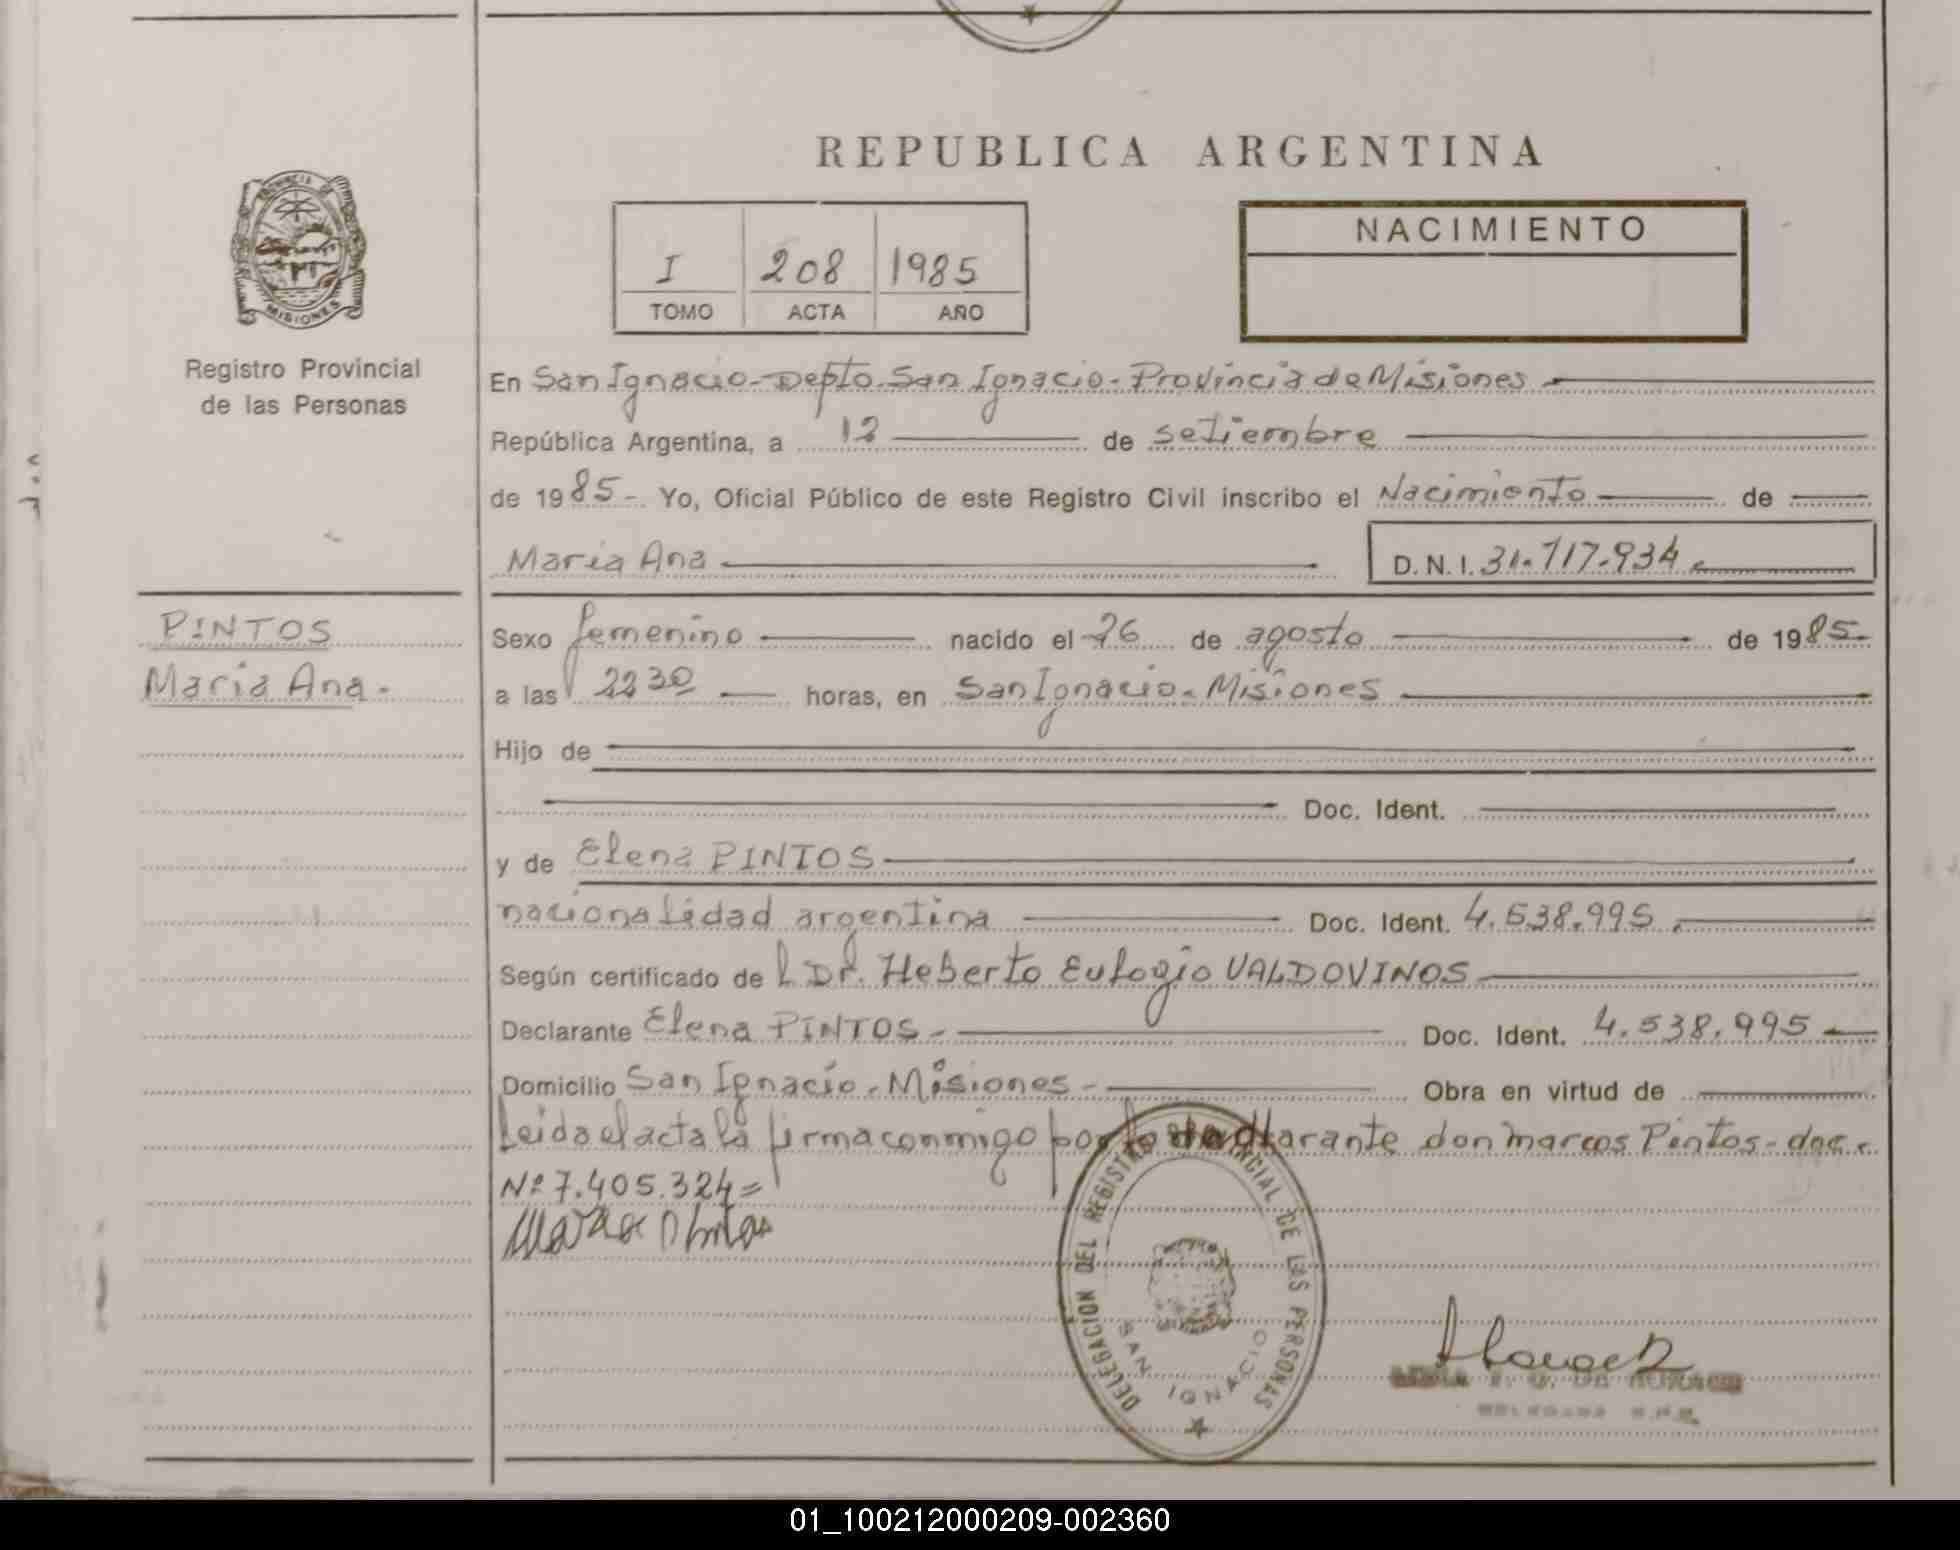 REPUBLICA ARGENTINA
PROVINCIA DE
MISIONES
Registro Provincial
de las Personas
I 208 1985
TOMO ACTA AÑO
NACIMIENTO
En San Ignacio-Depto. San Ignacio-Provincia de Misiones
República Argentina, a 12 de setiembre
de 1985- Yo, Oficial Público de este Registro Civil inscribo el Nacimiento de
Maria Ana D.N.I. 31.717.934
PINTOS
Maria Ana.
Sexo femenino nacido el 26 de agosto de 1985-
a las 2230 horas, en San Ignacio-Misiones
Hijo de
Doc. Ident.
y de Elena PINTOS
nacionalidad argentina Doc. Ident. 4.538.995
Según certificado de l Dr. Heberto Eulogio VALDOVINOS
Declarante Elena PINTOS- Doc. Ident. 4.538.995
Domicilio San Ignacio-Misiones- Obra en virtud de
Leida el acta la firma conmigo por la declarante don marcos Pintos-doc.
Nº 7.405.324=
DELEGACION DEL REGISTRO PROVINCIAL DE LAS PERSONAS
SAN IGNACIO
01_100212000209-002360